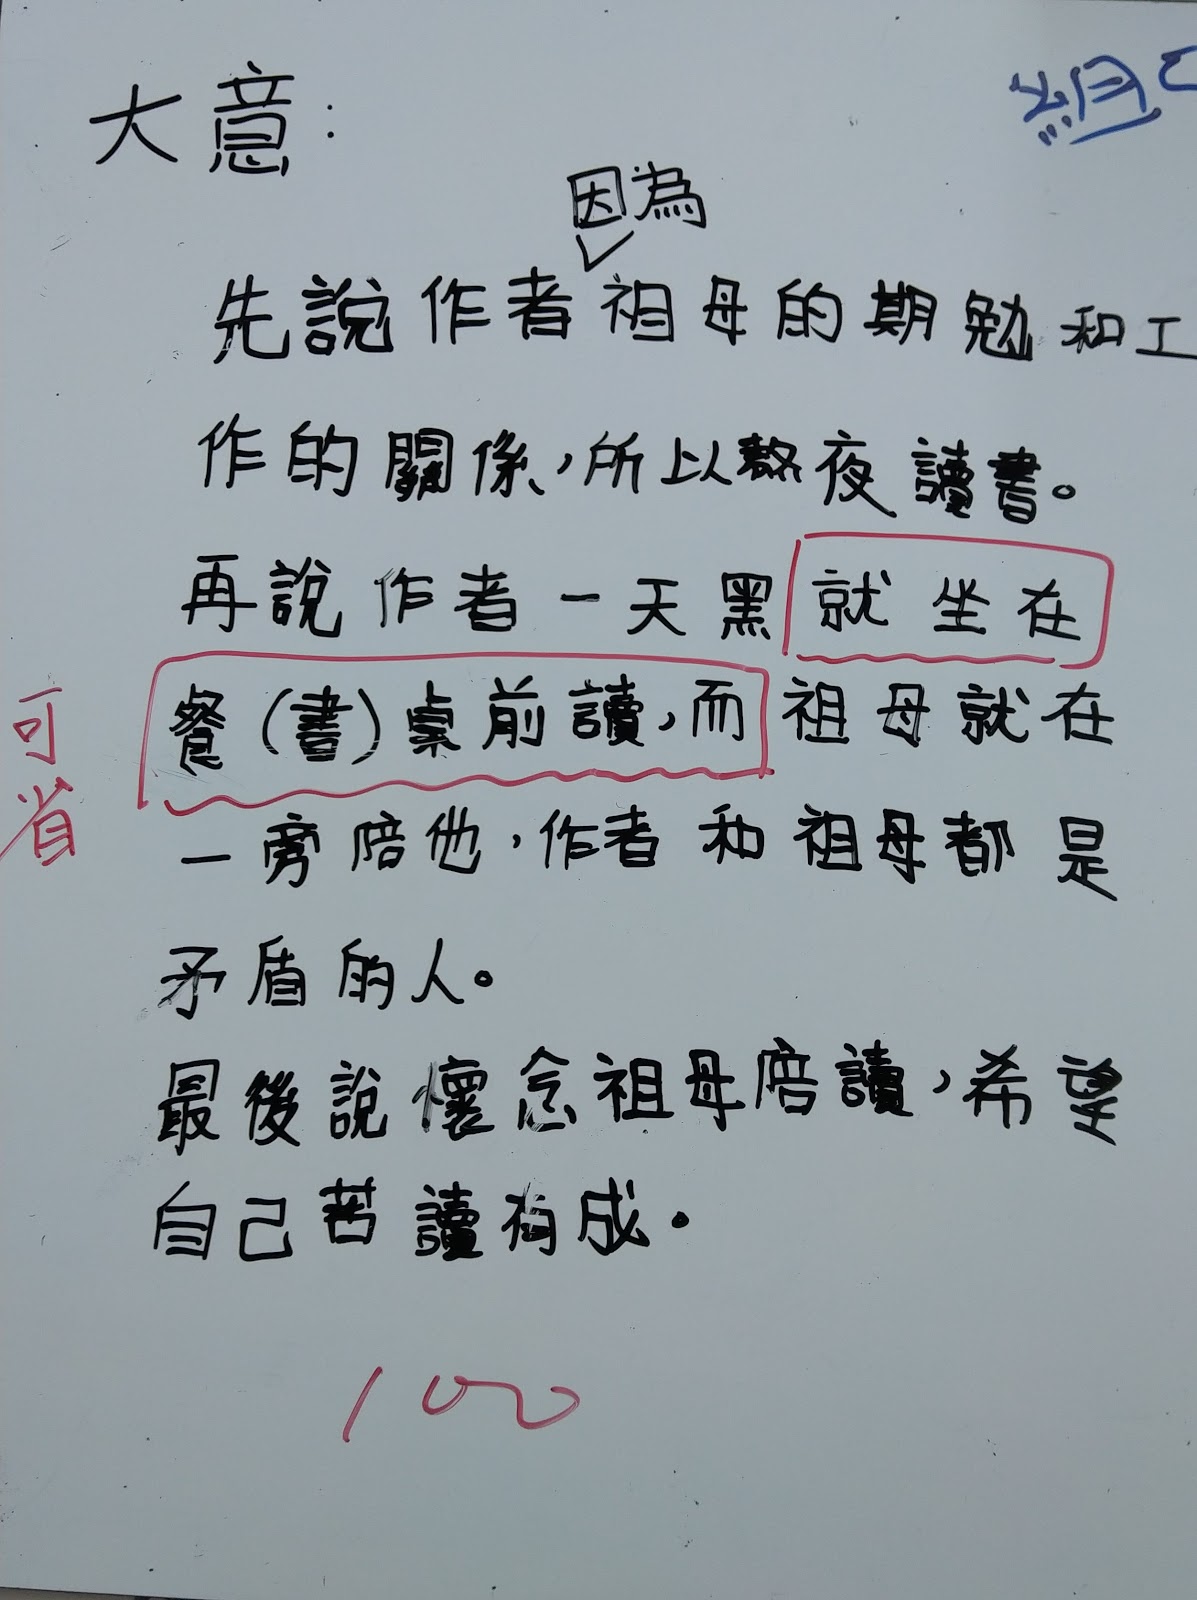 大意:
因為
先說作者祖母的期勉和工
作的關係,所以熬夜讀書。
再說作者一天黑就坐在
餐(書)桌前讀,而祖母就在
可省
一旁陪他,作者和祖母都是
矛盾的人。
最後說懷念祖母陪讀,希望
自己苦讀有成。
100